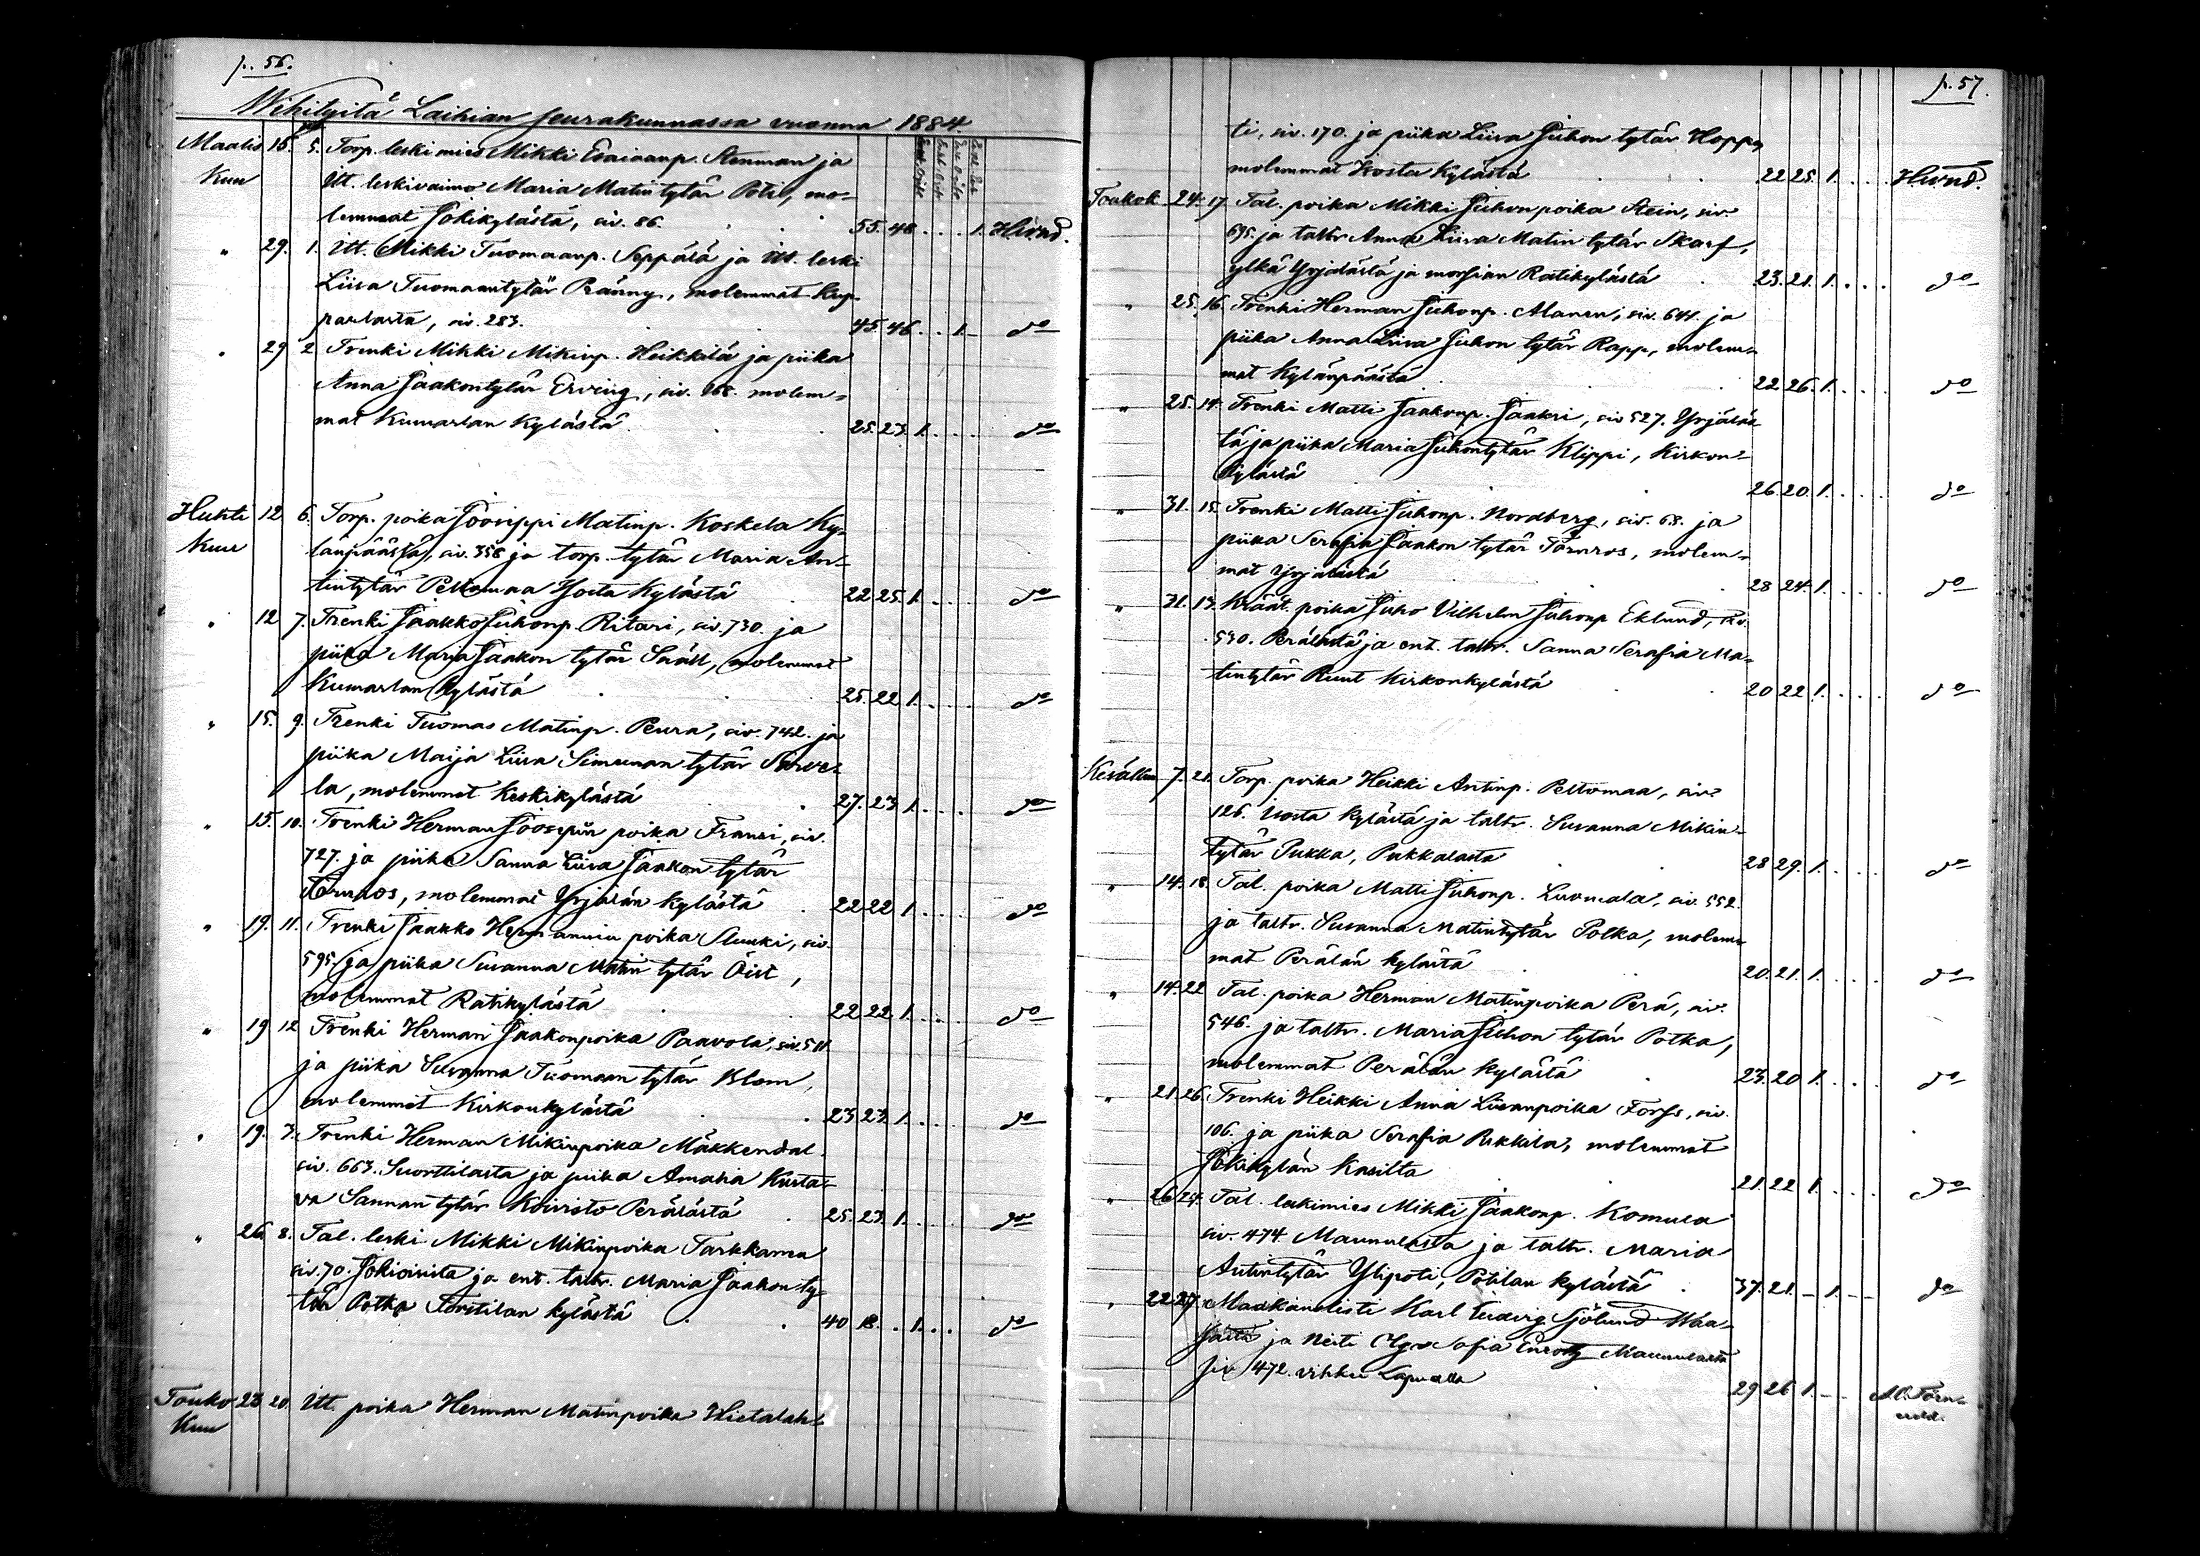 p. 56.
Wihityitä Laihian seurakunnassa vuonna 1884.
Maalis 16. 5. Torp. leskimies Mikki Esaiaanp. Stenman ja
kuu Itt. leskivaimo Maria Matintytär Poti, mo-
lemmat Jokikylästä, siv. 86. 55. 48. . . . 1. Hwnd.
" 29. 1. Itt. Mikki Tuomaanp. Seppälä ja Itt. leski
Liisa Tuomaantytär Pränny, molemmat
siv. 283. 45. 46. . . 1. do
" 29 2 Trenki Mikki Mikinp. Heikkilä ja piika
Anna Jaakontytär Erving, siv. 168. molem-
mat Kumarlan kylästä 25. 23. 1. . . . do
Huhti 12 6. Torp. poika Joosippi Matinp. Koskela Ky-
kuu länpäästä, siv. 358 ja torp. tytär Maria An-
tintytär Peltomaa Hosta kylästä 22 25. 1. . . . do
" 12 7. Trenki Jaakko Juhonp. Ritari, siv. 730. ja
piika Maria Jaakon tytär Snäll, molemmat
Kumarlan kylästä 25. 22 1. . . . do
" 15. 9. Trenki Tuomas Matinp. Peura, siv. 742. ja
piika Maija Liisa Simunan tytär Sarve-
la, molemmat Keskikylästä 27. 23 1. . . . do
" 15. 10. Trenki Herman Joosepin poika Fransi, siv.
727. ja piika Sanna Liisa Jaakon tytär
molemmat Yrjälän kylästä 22 22 1. . . . do
" 19. 11. Trenki Jaakko Hermannin poika Sluuki, siv.
595. ja piika Susanna Matin tytär Öist,
molemmat Ratikylästä 22 22 1. . . . do
" 19 12 Trenki Herman Jaakonpoika Paavola, siv. 511
ja piika Susanna Tuomaan tytär Blom,
molemmat Kirkonkylästä 23 23. 1. . . . do
" 19. 3. Trenki Herman Mikinpoika Mäkkendal
siv. 663. Suorttilasta ja piika Amalia Kusta-
va Sannan tytär Koivisto Perälästä 25. 23. 1. . . . do
" 26 8. Tal. leski Mikki Mikinpoika Tarkkanen
siv. 70. ja ent. taltr. Maria Jaakon ty-
tär Potka kylästä 40 18. . 1. . . do
Touko 23 20. Itt. poika Herman Matinpoika Hietalah-
kuu
p. 57.
ti, siv. 170. ja piika Liisa Juhon tytär Hopp,
molemmat Hosta kylästä 22 25. 1. . . . Hwnd.
Toukok. 24. 17. Tal. poika Mikki Juhonpoika Stein, siv.
695. ja taltr Anna Liisa Matin tytär Skarf,
ylkä Yrjälästä ja morsian Ratikylästä 23. 21. 1. . . . do
" 25. 16. Trenki Herman Juhonp. Alanen, siv. 644. ja
piika Anna Liisa Juhon tytär Rapp, molem-
mat Kylänpäästä 22 26. 1. . . . do
" 25. 14. Trenki Matti Jaakonp. Jaakri, siv 527. Yrjäläs-
tä ja piika Maria Juhontytär Klippi, Kirkon-
kylästä 26. 20. 1. . . . do
" 31. 15. Trenki Matti Juhonp. Nordberg, siv. 68. ja
piika Serafia Jaakon tytär Törnros, molem-
mat Yrjälästä 28 24. 1. . . . do
" 31. 13. Kräät. poika Juho Vilhelm Juhonp Eklund, siv.
530. Perälästä ja ent. taltr. Sanna Serafia Ma-
tintytär Ruut Kirkonkylästä 20 22 1. . . . do
7. 21. Torp. poika Heikki Antinp. Peltomaa, siv.
126. Hosta kylästä ja taltr. Susanna Mikin-
tytär Pukka, Pukkalasta 28 29. 1. . . . do
" 14. 18. Tal. poika Matti Juhonp. Luomala, siv. 552.
ja taltr. Susanna Matintytär Potka, molem-
mat Perälän kylästä 20. 21. 1. . . . do
" 14. 22 Tal. poika Herman Matinpoika Perä, siv.
546. ja taltr. Maria Juhon tytär Potka,
molemmat Perälän kylästä 23. 20 1. . . . do
" 21. 26. Trenki Heikki Anna Liisanpoika Forss, siv.
106. ja piika Serafia Pukkila, molemmat
Jokikylän 21. 22 1. . . . do
" 26 24. Tal. leskimies Mikki Jaakonp. Komula
siv. 474 Maunulasta ja taltr. Maria
Antintytär Ylipoti, Potilan kylästä 37. 21. – 1. – – do
" 22 27. Maakanslisti Karl Ludvig Sjölund Waa-
ja Neiti Olga Sofia Maunulasta
siv 472. vihki Lapualla 29 26 1. – – A. O. Törn-